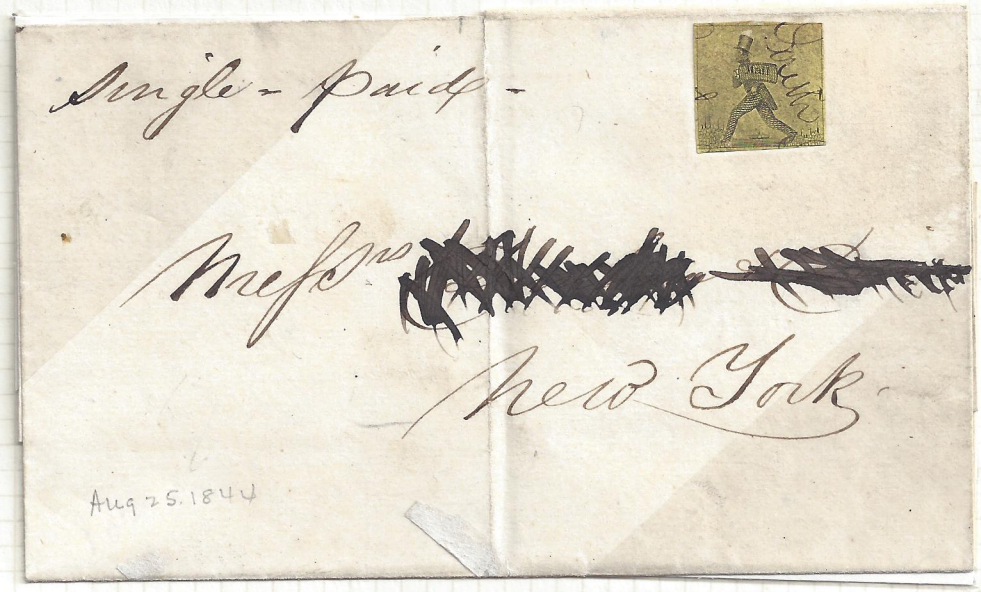 Single - Paid -
Messrs
New York.
Aug 25. 1844